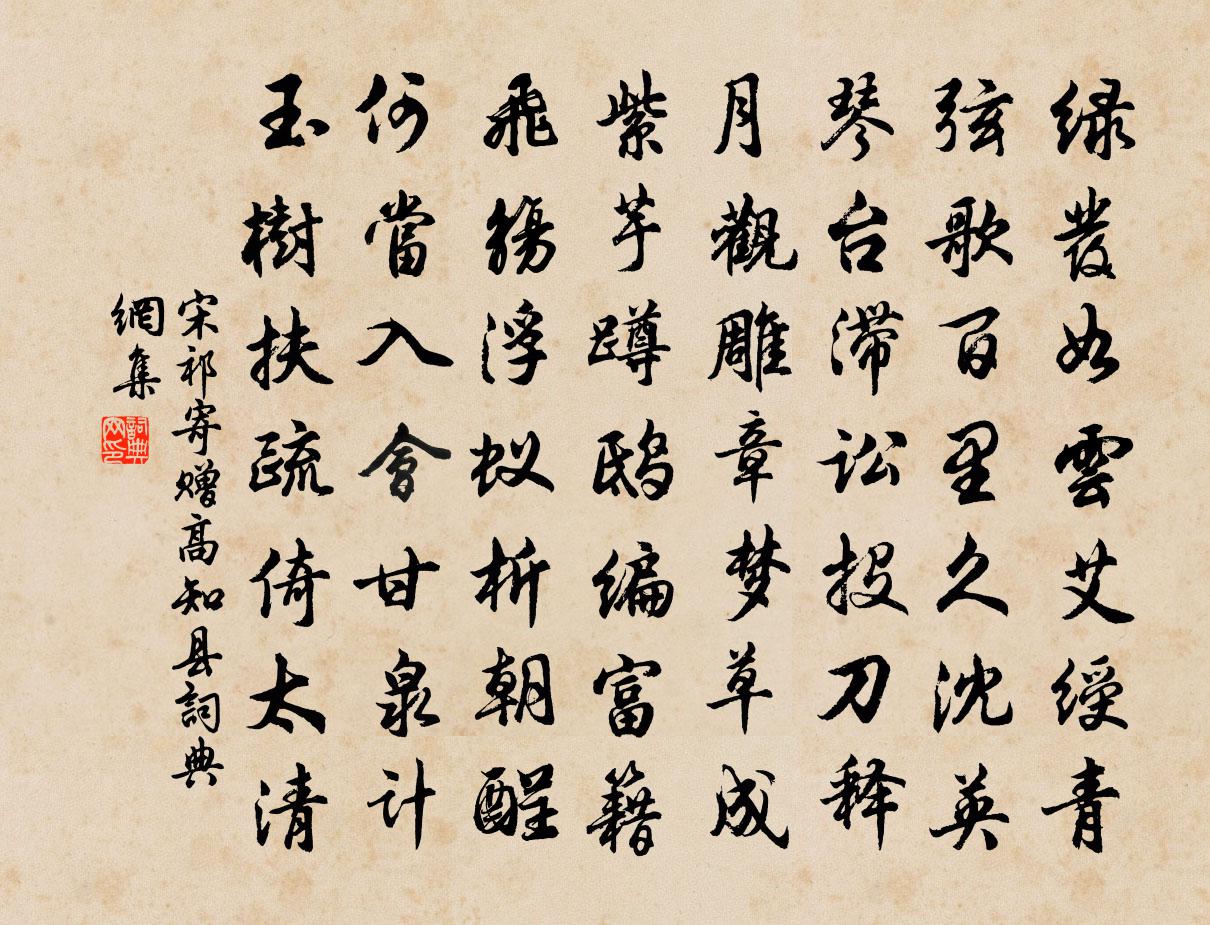 绿发如雲艾绶青
弦歌百里久沈英
琴台滞讼投刀释
月觀雕章梦草成
紫芋蹲鸱编富籍
飛觴浮蚁析朝酲
何當入會甘泉计
玉樹扶疏倚太清
宋祁寄赠高知县詞典
網集
詞典
网印